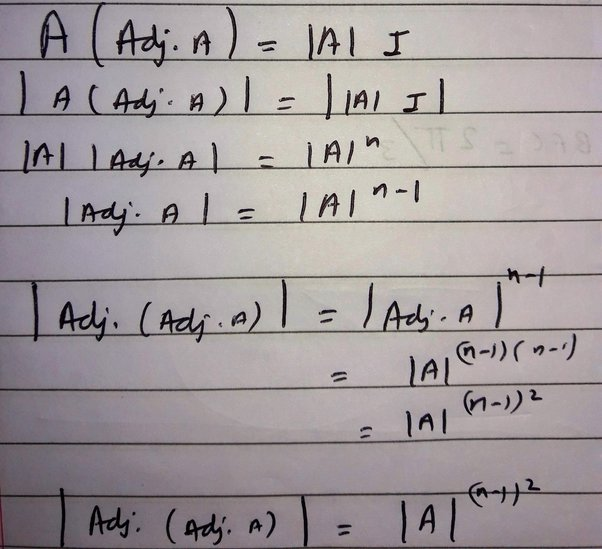 A (Adj. A) = |A| I
| A (Adj. A) | = | |A| I |
|A| |Adj. A| = |A|^n
|Adj. A| = |A|^{n-1}
| Adj. (Adj. A) | = |Adj. A|^{n-1}
= |A|^{(n-1)(n-1)}
= |A|^{(n-1)^2}
| Adj. (Adj. A) | = |A|^{(n-1)^2}